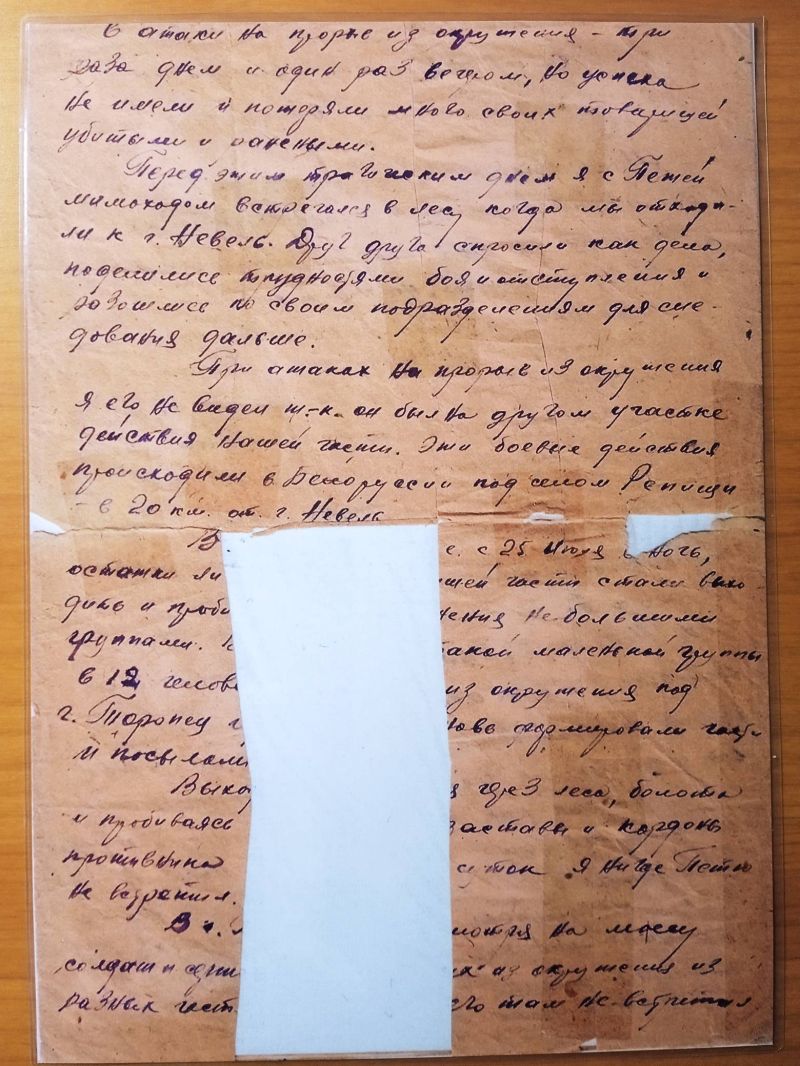 В атаки на прорыв из окружения - три
раза днем и один раз вечером, но успеха
не имели и потеряли много своих товарищей
убитыми и ранеными.
Перед этим трагическим днем я с Петей
мимоходом встречался в лесу когда мы отходи-
ли к г. Невель. Друг друга спросили как дела,
поделились трудностями боя и отступления и
разошлись по своим подразделениям для сле-
дования дальше.
При атаках на прорыв из окружения
я его не видел т-к. он был на другом участке
действия нашей части. Эти боевые действия
происходили в Белоруссии под селом Репищи
- в 20 км. от г. Невель
В е. с 25 июля в ночь,
остатки ли шей части стали выхо-
дить и проби ения небольшими
группами. такой маленькой группы
в 12 челове из окружения под
г. Торопец нова формировали части
и посылали
Выхо через леса, болота
и пробиваясь заставы и кордоны
противника суток я нигде Петю
не встретил.
В г. мотря на массу
солдат и их из окружения из
разных част его там не встретил